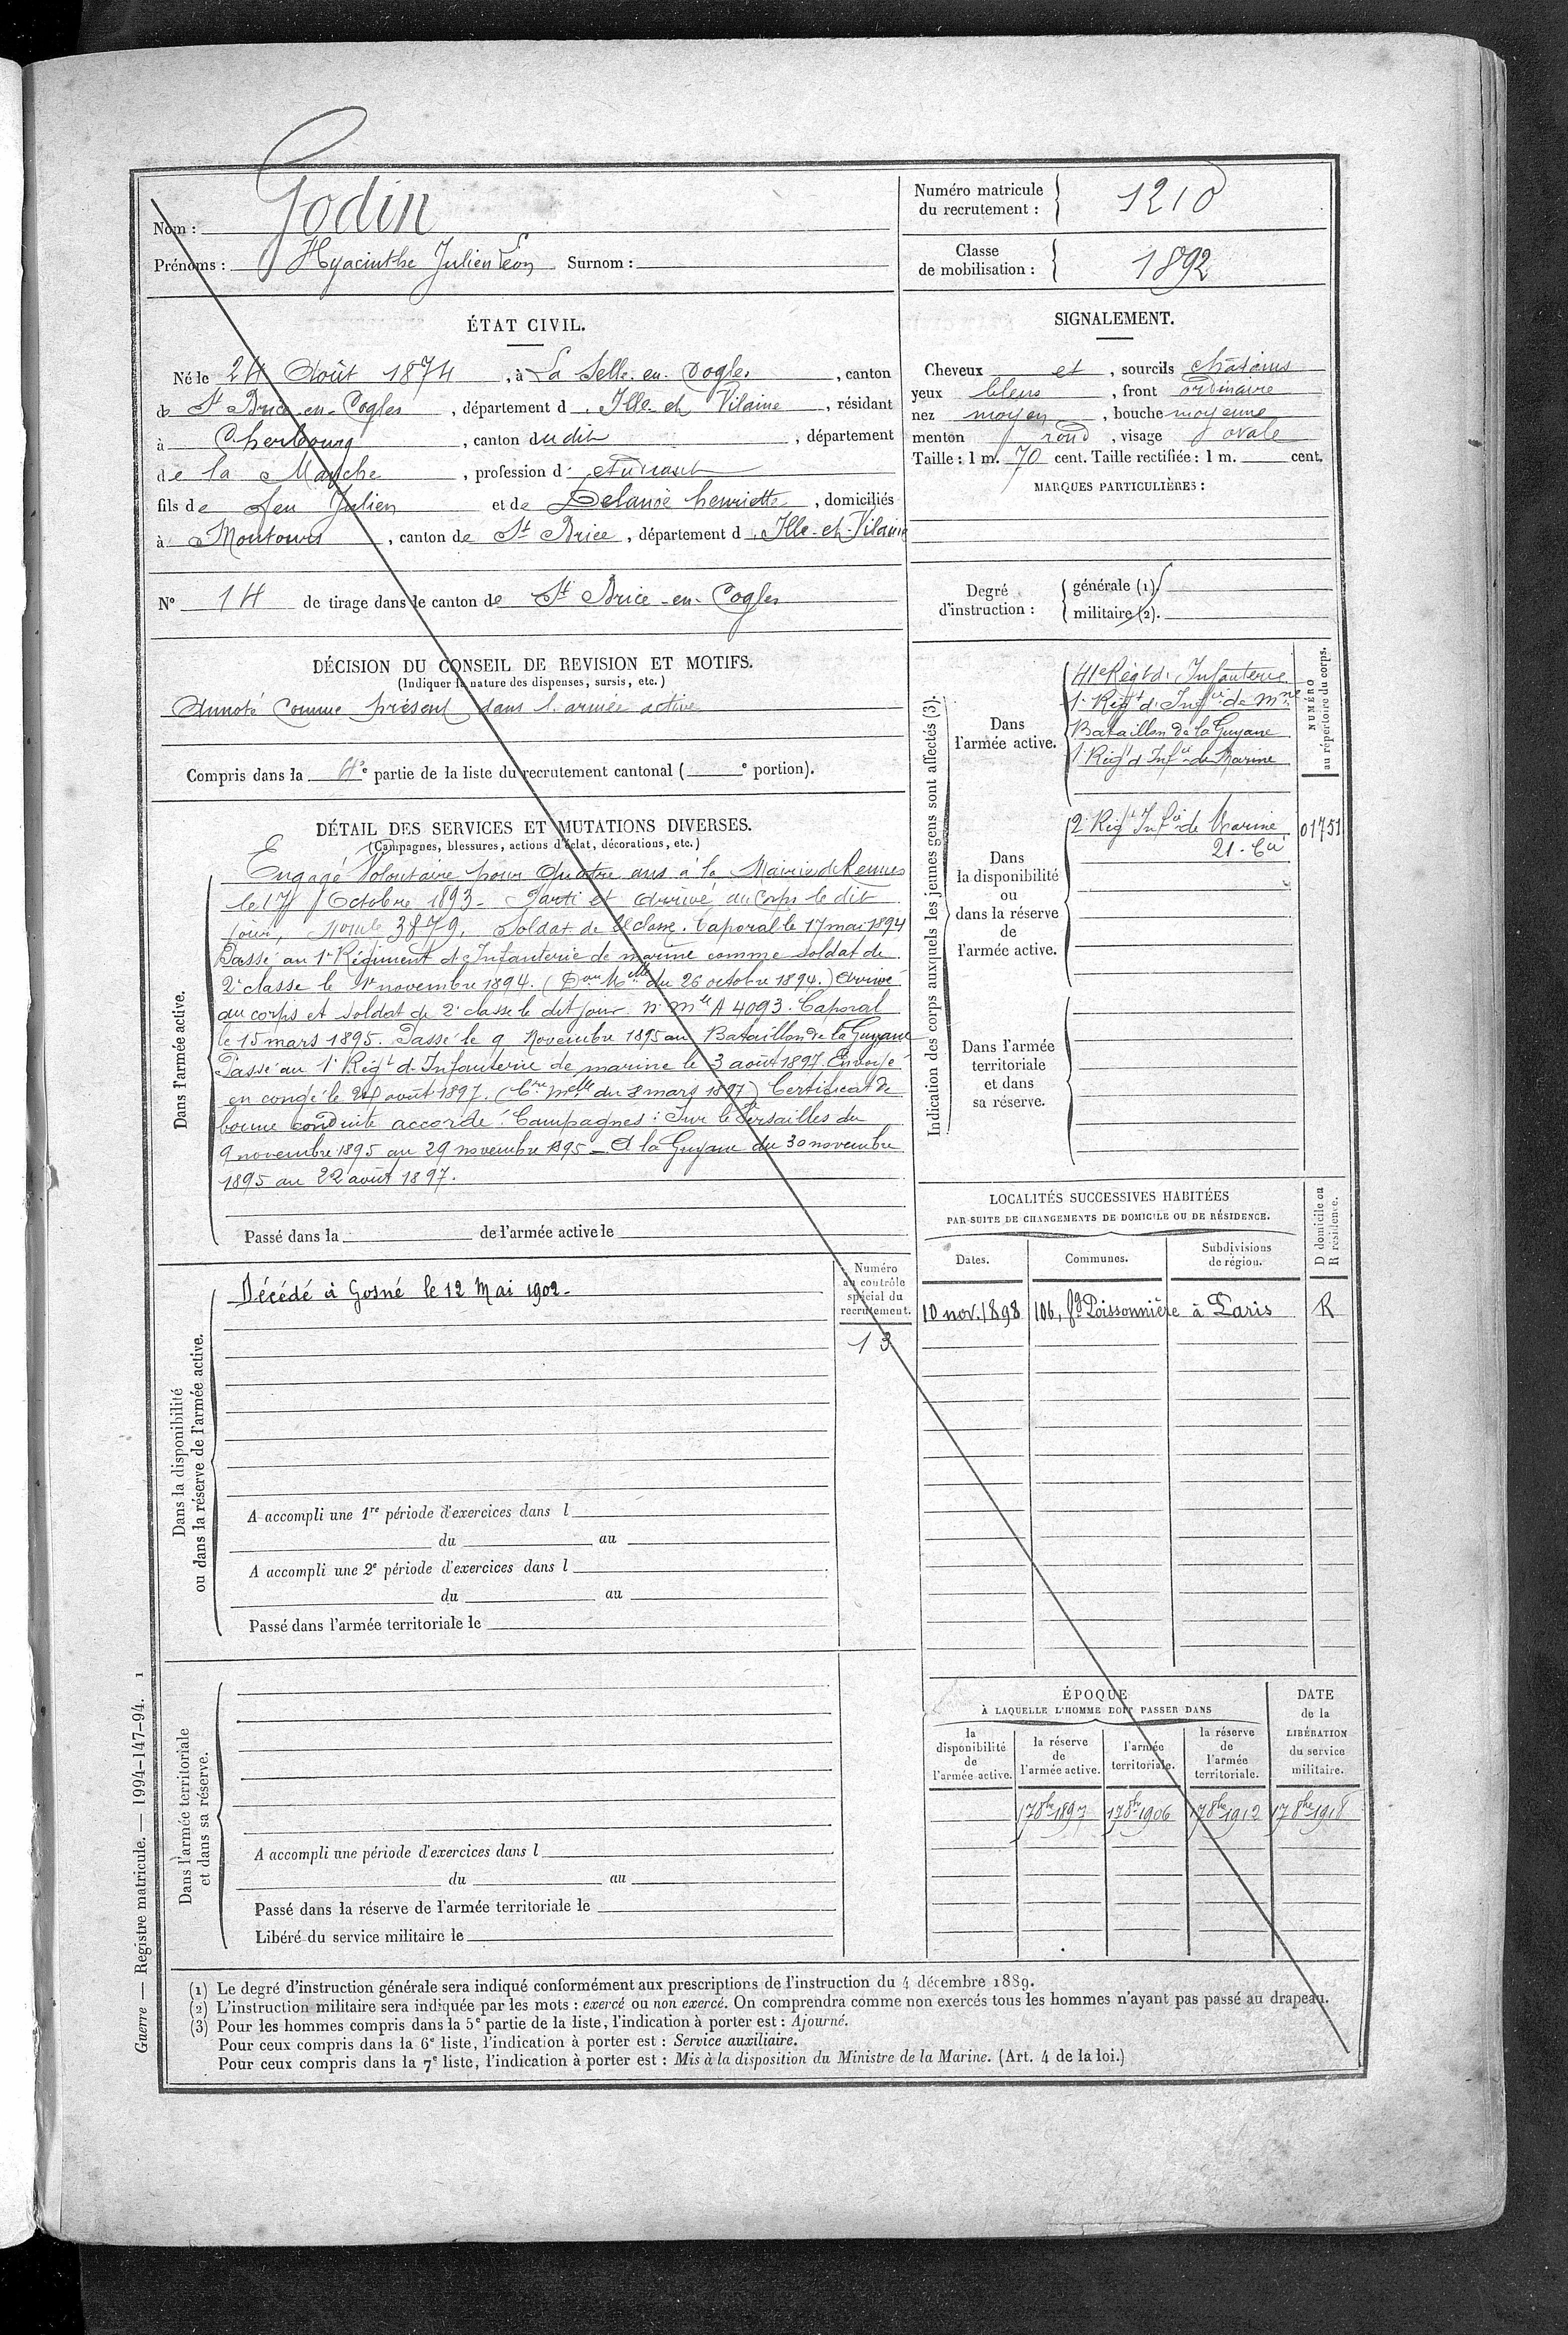 Nom : Godin
Prénoms : Hyacinthe Julien Léon Surnom :
Numéro matricule du recrutement : 1210
Classe de mobilisation : 1892
ÉTAT CIVIL.
Né le 24 Août 1874, à La Selle-en-Cogles, canton
de St Brice-en-Cogles, département d'Ille-et-Vilaine, résidant
à Cherbourg, canton dudit, département
de la Manche, profession d'étudiant
fils de feu Julien et de Delanoë henriette, domiciliés
à Montours, canton de St Brice, département d'Ille-et-Vilaine
N° 14 de tirage dans le canton de St Brice-en-Cogles
SIGNALEMENT.
Cheveux et, sourcils châtains
yeux bleus, front ordinaire
nez moyen, bouche moyenne
menton rond, visage ovale
Taille : 1 m. 70 cent. Taille rectifiée : 1 m. cent.
MARQUES PARTICULIÈRES :
Degré d'instruction : générale (1).
militaire (2).
DÉCISION DU CONSEIL DE REVISION ET MOTIFS.
(Indiquer la nature des dispenses, sursis, etc.)
Annoté comme présent dans l'armée active
Compris dans la 4e partie de la liste du recrutement cantonal ( e portion).
DÉTAIL DES SERVICES ET MUTATIONS DIVERSES.
(Campagnes, blessures, actions d'éclat, décorations, etc.)
Dans l'armée active.
Engagé Volontaire pour quatre ans à la Mairie de Rennes
le 17 Octobre 1893 - Parti et arrivé au Corps le dit
jour, 3879, Soldat de 2e classe. Caporal le 17 mai 1894
Passé au 1er Régiment d'Infanterie de marine comme soldat de
2e classe le 1er novembre 1894. (Don Melle du 26 octobre 1894.) Arrivé
au corps et soldat de 2e classe le dit jour. n° mle A 4093. Caporal
le 15 mars 1895. Passé le 9 Novembre 1895 au Bataillon de la Guyane
Passé au 1er Régt d'Infanterie de marine le 3 août 1897. Envoyé
en congé le août 1897. (Cre Melle du 8 mars 1897) Certificat de
bonne conduite accordé. Campagnes : Sur le Versailles du
9 novembre 1895 au 29 novembre 1895 - A la Guyane du 30 novembre
1895 au 22 août 1897.
Passé dans la de l'armée active le
Indication des corps auxquels les jeunes gens sont affectés (3).
NUMÉRO au répertoire du corps.
Dans l'armée active.
41e Régt d'Infanterie
1er Régt d'Infie de Mne
Bataillon de la Guyane
1er Régt d'Infie de Marine
Dans la disponibilité ou dans la réserve de l'armée active.
2e Régt Infie de Marine 01751
21e Cie
Dans l'armée territoriale et dans sa réserve.
Dans la disponibilité ou dans la réserve de l'armée active.
Décédé à Gosné le 12 Mai 1902.
Numéro au contrôle spécial du recrutement.
13
A accompli une 1re période d'exercices dans l
du au
A accompli une 2e période d'exercices dans l
du au
Passé dans l'armée territoriale le
LOCALITÉS SUCCESSIVES HABITÉES
PAR SUITE DE CHANGEMENTS DE DOMICILE OU DE RÉSIDENCE.
Dates. Communes. Subdivisions de région. D domicile ou R résidence.
10 nov. 1898 106, fg Poissonnière à Paris R
Dans l'armée territoriale et dans sa réserve.
A accompli une période d'exercices dans l
du au
Passé dans la réserve de l'armée territoriale le
Libéré du service militaire le
ÉPOQUE
À LAQUELLE L'HOMME DOIT PASSER DANS
la disponibilité de l'armée active. la réserve de l'armée active. l'armée territoriale. la réserve de l'armée territoriale. DATE de la LIBÉRATION du service militaire.
17 8bre 1897 17 8bre 1906 17 8bre 1912 17 8bre 1918
(1) Le degré d'instruction générale sera indiqué conformément aux prescriptions de l'instruction du 4 décembre 1889.
(2) L'instruction militaire sera indiquée par les mots : exercé ou non exercé. On comprendra comme non exercés tous les hommes n'ayant pas passé au drapeau.
(3) Pour les hommes compris dans la 5e partie de la liste, l'indication à porter est : Ajourné.
Pour ceux compris dans la 6e liste, l'indication à porter est : Service auxiliaire.
Pour ceux compris dans la 7e liste, l'indication à porter est : Mis à la disposition du Ministre de la Marine. (Art. 4 de la loi.)
Guerre — Registre matricule. — 1994-147-94. 1